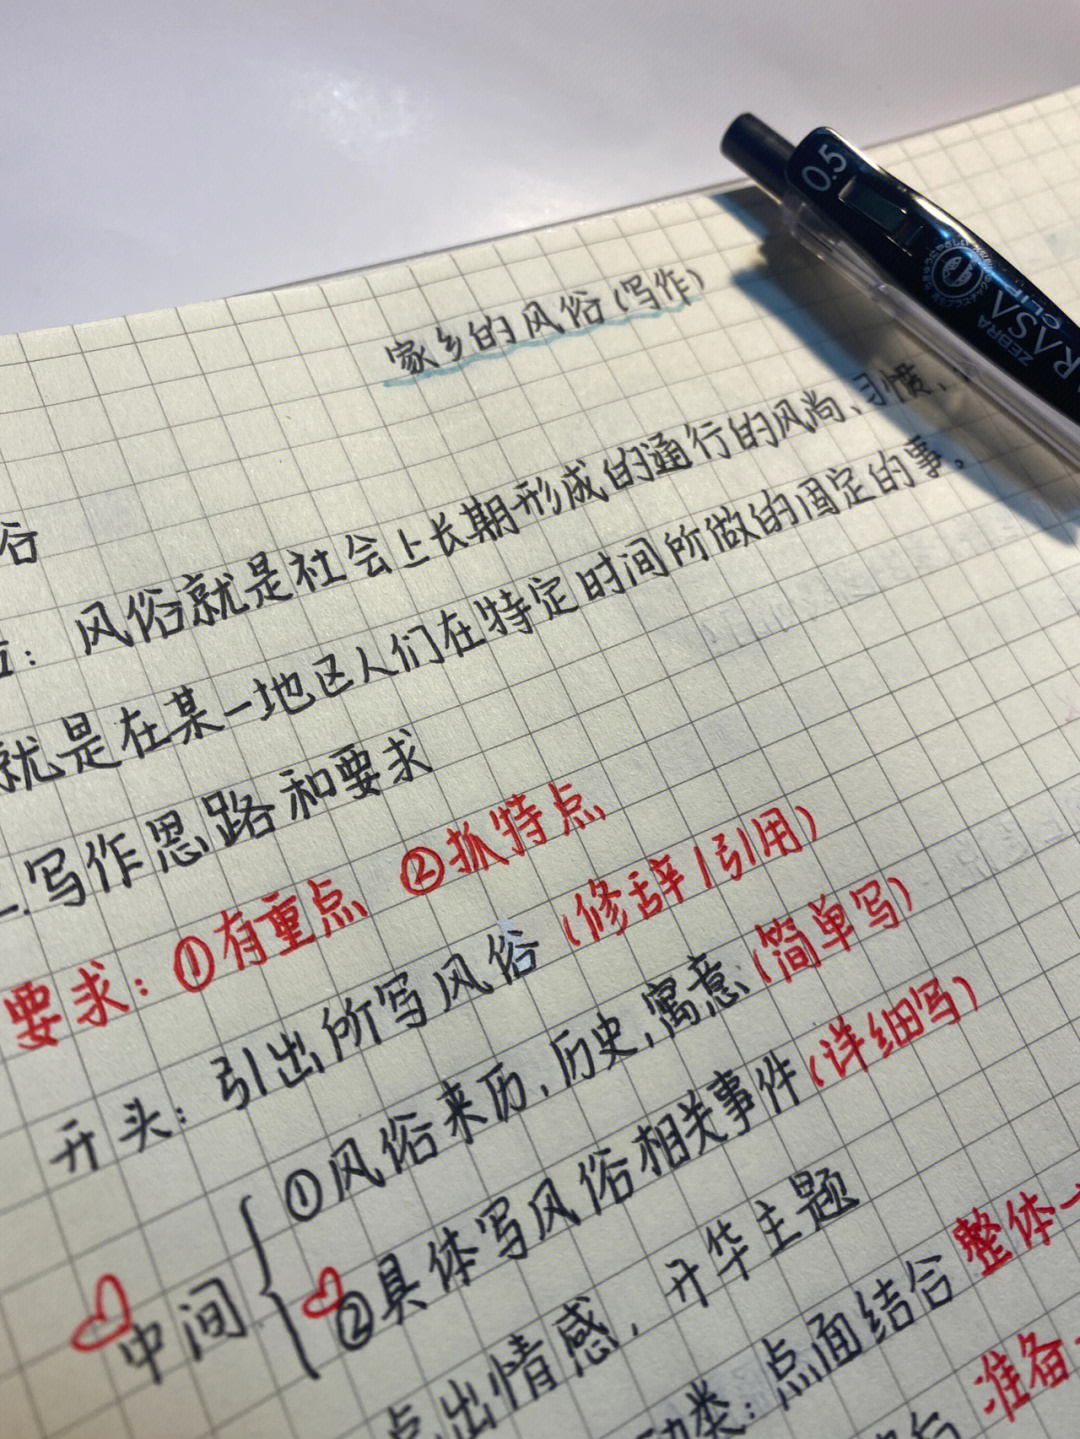 家乡的风俗(写作)
俗
：风俗就是社会上长期形成的通行的风尚、习惯、
就是在某一地区人们在特定时间所做的固定的事。
二.写作思路和要求
要求：①有重点 ②抓特点
开头：引出所写风俗(修辞/引用)
①风俗来历,历史,寓意(简单写)
中间
②具体写风俗相关事件(详细写)
点出情感,升华主题
动类：点面结合 整体
准备
0.5
ZEBRA
CLIP